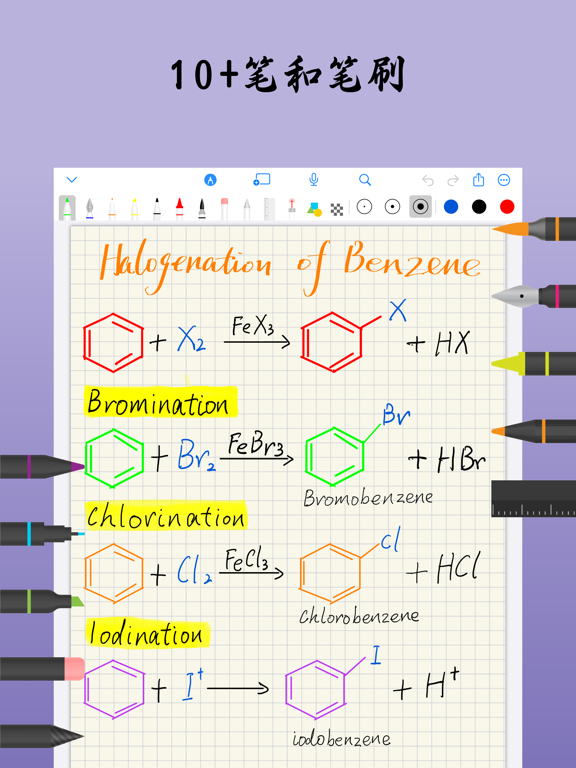 10+笔和笔刷
Halogenation of Benzene
+ X₂ FeX₃ X + HX
Bromination
+ Br₂ FeBr₃ Br + HBr
Bromobenzene
Chlorination
+ Cl₂ FeCl₃ Cl + HCl
Chlorobenzene
Iodination
+ I⁺ I + H⁺
iodobenzene